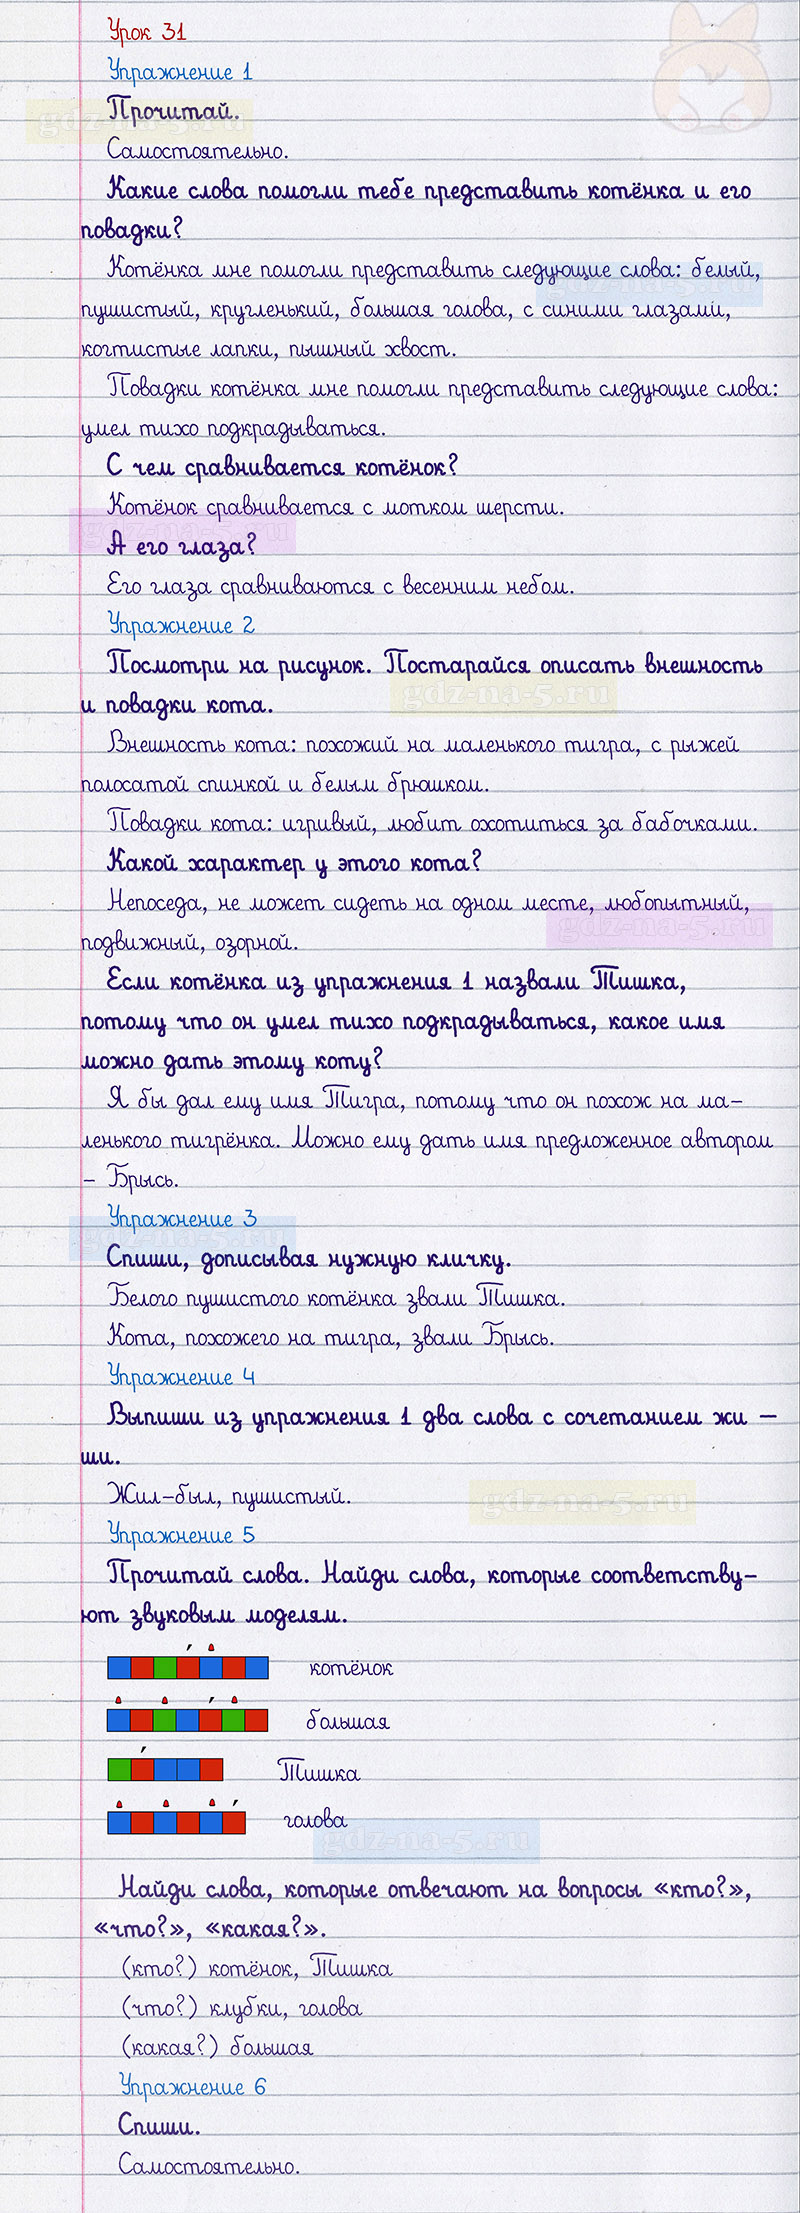 Урок 31
Упражнение 1
Прочитай.
gdz-na-5.ru
Самостоятельно.
Какие слова помогли тебе представить котёнка и его
повадки?
Котёнка мне помогли представить следующие слова: белый,
gdz-na-5.ru
пушистый, кругленький, большая голова, с синими глазами,
когтистые лапки, пышный хвост.
Повадки котёнка мне помогли представить следующие слова:
умел тихо подкрадываться.
С чем сравнивается котёнок?
Котёнок сравнивается с мотком шерсти.
gdz-na-5.ru
А его глаза?
Его глаза сравниваются с весенним небом.
Упражнение 2
Посмотри на рисунок. Постарайся описать внешность
gdz-na-5.ru
и повадки кота.
Внешность кота: похожий на маленького тигра, с рыжей
полосатой спинкой и белым брюшком.
Повадки кота: игривый, любит охотиться за бабочками.
Какой характер у этого кота?
Непоседа, не может сидеть на одном месте, любопытный,
gdz-na-5.ru
подвижный, озорной.
Если котёнка из упражнения 1 назвали Тишка,
потому что он умел тихо подкрадываться, какое имя
можно дать этому коту?
Я бы дал ему имя Тигра, потому что он похож на ма-
ленького тигрёнка. Можно ему дать имя предложенное автором
- Брысь.
Упражнение 3
gdz-na-5.ru
Спиши, дописывая нужную кличку.
Белого пушистого котёнка звали Тишка.
Кота, похожего на тигра, звали Брысь.
Упражнение 4
Выпиши из упражнения 1 два слова с сочетанием жи –
ши.
Жил-был, пушистый.
gdz-na-5.ru
Упражнение 5
Прочитай слова. Найди слова, которые соответству-
ют звуковым моделям.
котёнок
большая
Тишка
голова
gdz-na-5.ru
Найди слова, которые отвечают на вопросы «кто?»,
«что?», «какая?».
(кто?) котёнок, Тишка
(что?) клубки, голова
(какая?) большая
Упражнение 6
Спиши.
Самостоятельно.